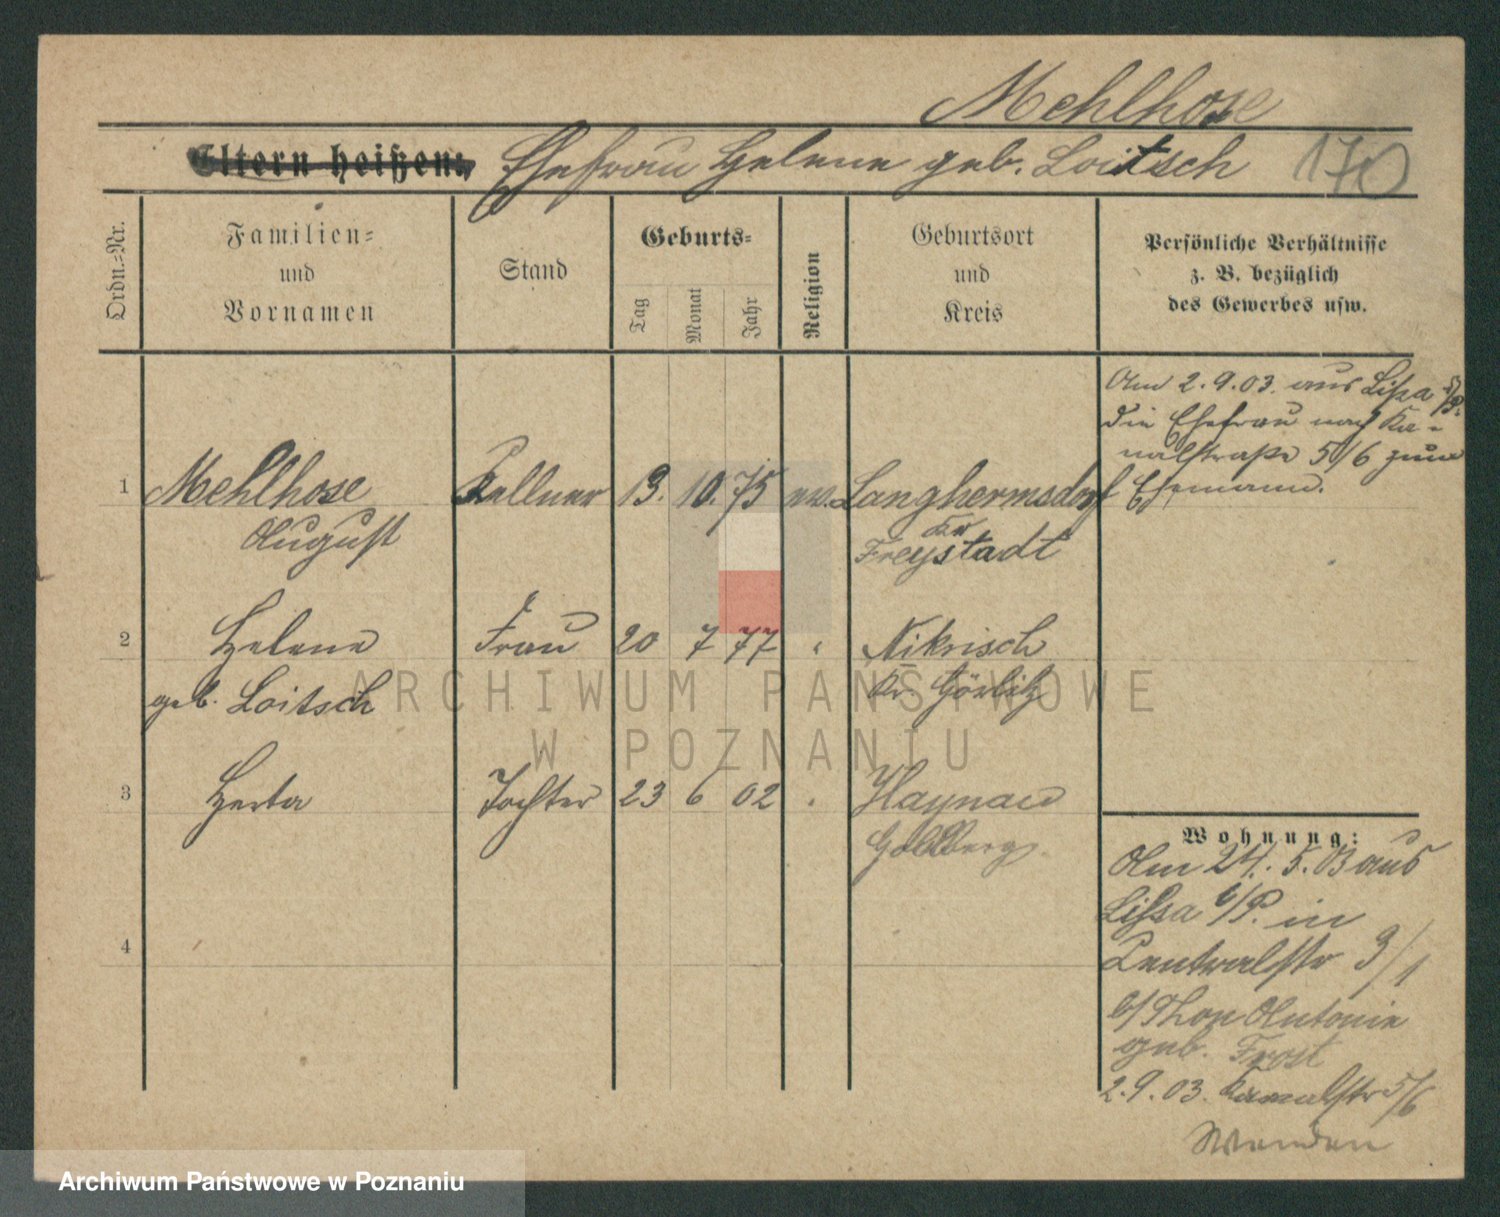 Mehlhose
Eltern heißen: Ehefrau Helene geb. Loitsch 170
Ordn.-Nr.
Familien-
und
Vornamen
Stand
Geburts-
Tag
Monat
Jahr
Religion
Geburtsort
und
Kreis
Persönliche Verhältnisse
z. B. bezüglich
des Gewerbes usw.
Am 2.9.03. aus Lissa i/P.
die Ehefrau nach Ka-
nalstraße 5/6 zum
Ehemann.
1 Mehlhose Kellner 13. 10. 75 ev. Langhermsdorf
August Kr
Freystadt
2 Helene Frau 20 7 77 " Nikrisch
geb. Loitsch Kr. Görlitz
3 Herta Tochter 23 6 02 " Haynau
Goldberg
4
Wohnung:
Am 24. 5. 03 aus
Lissa i/P. in
Centralstr 3/1
b/ Thon Antonie
geb. Frost
2.9.03. Kanalstr 5/6
ARCHIWUM PAŃSTWOWE
W POZNANIU
Archiwum Państwowe w Poznaniu